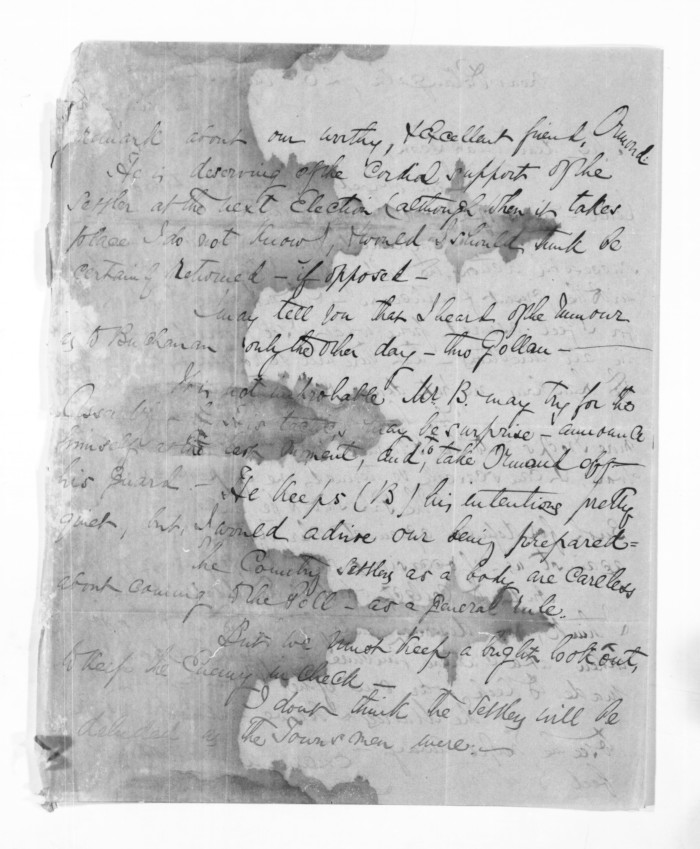 remark about our worthy, & excellent friend, Ormond.
He is deserving of the Cordial support of the
Settler at the next Election (although when it takes
place I do not know), & would I should think be
certainly returned – if opposed –
I may tell you that I heard of the rumour
as to Buchanan only the other day – thro Gollan –
It is not improbable Mr. B. may try for the
may be surprise – announce
himself at the last moment, and, to take Ormond off
his guard – He keeps (B) his intentions pretty
quiet, but, I would advise our being prepared =
The Country Settlers as a body are careless
about coming to the Poll – as a general rule.
But we must keep a bright look out,
to keep the Enemy in check –
I dont think the Settlers will be
deluded as the Towns men were –